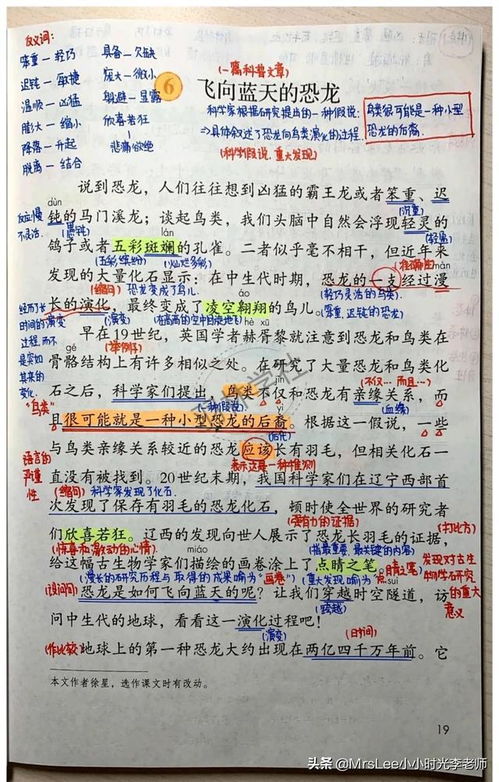 反义词：
笨重—轻巧
迟钝—敏捷
温顺—凶猛
膨大—缩小
降落—升起
脱离—结合
具备—欠缺
庞大—微小
躲避—显露
欣喜若狂
悲痛欲绝
(一篇科普文章)
6 飞向蓝天的恐龙
科学家根据研究提出的一种假说：
鸟类很可能是一种小型恐龙的后裔.
⇒具体叙述了恐龙向鸟类演化的过程.
(科学假说, 重大发现)
说到恐龙，人们往往想到凶猛的霸王龙或者笨重、迟
dùn
钝的马门溪龙；谈起鸟类，我们头脑中自然会浮现轻灵的
反应慢
不灵活.
(愚钝)
(沉重)
(轻盈)
鸽子或者五彩斑斓的孔雀。二者似乎毫不相干，但近年来
(五彩缤纷)
(灿烂多彩)
màn
发现的大量化石显示：在中生代时期，恐龙的一支经过漫
(缩句)
恐龙变成了鸟儿.
(轻巧灵活的鸟儿)
长的演化，最终变成了凌空翱翔的鸟儿。
经历了长
时间的演变
过程, 而不
是突如
其来的
变化.
(演变)
(在高高的空中自由地飞)
(笨重、迟钝的恐龙)
hè xū
早在19世纪，英国学者赫胥黎就注意到恐龙和鸟类在
gé
(举例子)
骨骼结构上有许多相似之处。在研究了大量恐龙和鸟类化
(不仅…而且…)
石之后，科学家们提出，鸟类不仅和恐龙有亲缘关系，而
"鸟类"
(一种假说)
yì
(血缘)
且很可能就是一种小型恐龙的后裔。根据这一假说，一些
(后代)
与鸟类亲缘关系较近的恐龙应该长有羽毛，但相关化石一
语言的
严谨
性
表示这是一种推测
直没有被找到。20世纪末期，我国科学家们在辽宁西部首
(缩句)
科学家发现了化石.
次发现了保存有羽毛的恐龙化石，顿时使全世界的研究者
(强有力的证据)
们欣喜若狂。辽西的发现向世人展示了恐龙长羽毛的证据，
(惊喜和激动的心情)
miáo
(指最重要、最关键的内容)
(打比方)
给这幅古生物学家们描绘的画卷涂上了点睛之笔。
(漫长的研究历程与取得的成果喻为"画卷")
(重大发现喻为"点睛之笔")
发现对古生
物学研究
的重大
意义
(设问句)
suì
恐龙是如何飞向蓝天的呢？让我们穿越时空隧道，访
(跨越)
问中生代的地球，看看这一演化过程吧！
(演变)
(时间)
(作比较)
地球上的第一种恐龙大约出现在两亿四千万年前。它
本文作者徐星，选作课文时有改动。
19
头条 @MrsLee小小时光李老师